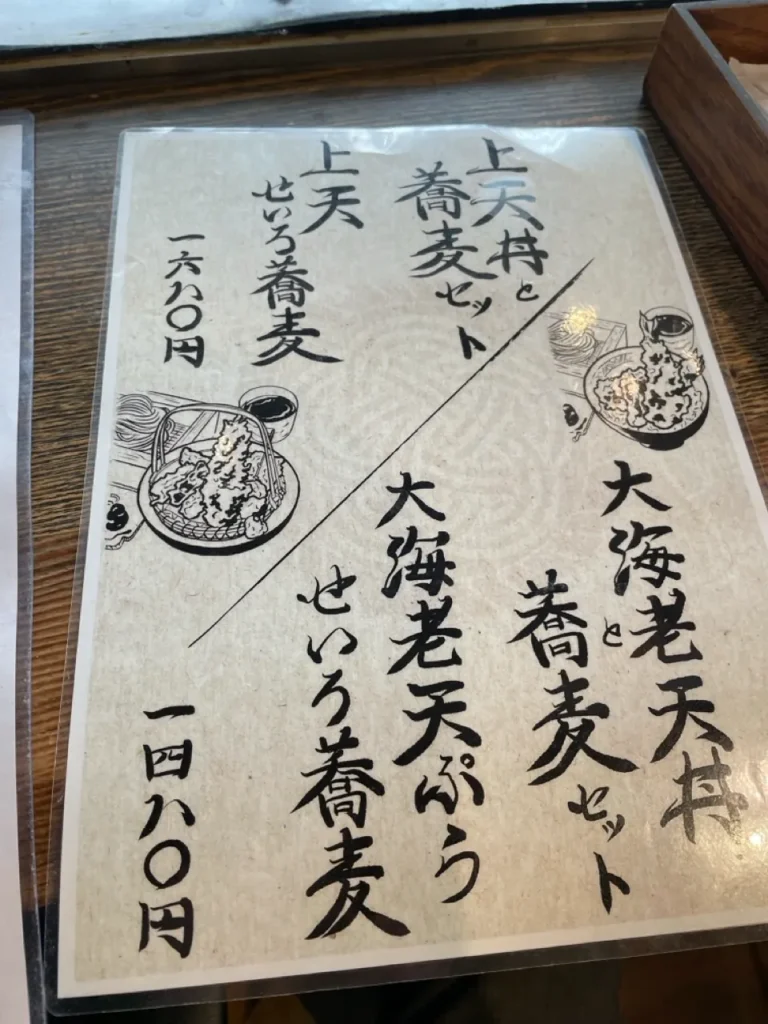 上天丼と
蕎麦セット
上天
せいろ蕎麦
一六八〇円
大海老天丼と
蕎麦セット
大海老天ぷら
せいろ蕎麦
一四八〇円